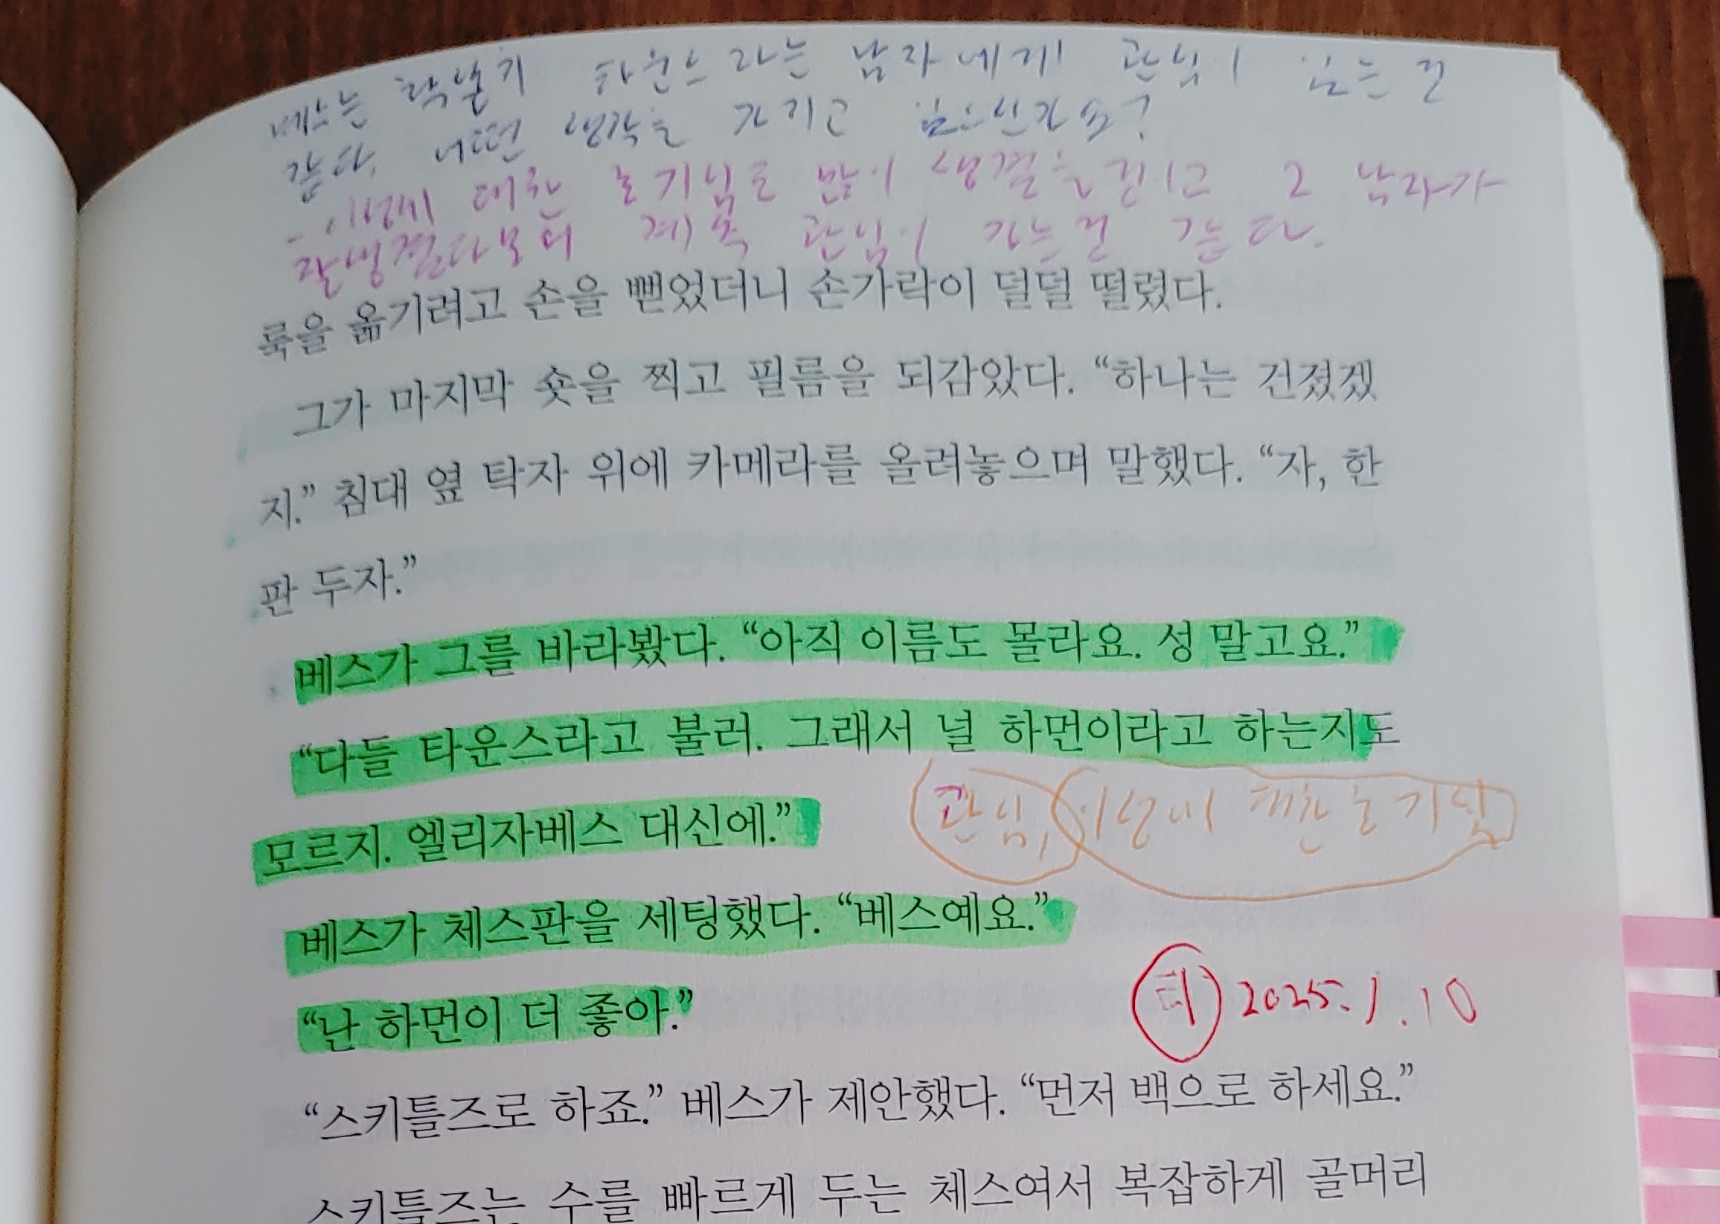 베스는 확실히 타운스라는 남자에게 관심이 있는 것
같다. 어떤 생각을 가지고 있으신가요?
- 이성에 대한 호기심도 많이 생겼을 것이고 그 남자가
잘생겼다보니 계속 관심이 가는것 같다.
룩을 옮기려고 손을 뻗었더니 손가락이 덜덜 떨렸다.
그가 마지막 숏을 찍고 필름을 되감았다. “하나는 건졌겠
지.” 침대 옆 탁자 위에 카메라를 올려놓으며 말했다. “자, 한
판 두자.”
베스가 그를 바라봤다. “아직 이름도 몰라요. 성 말고요.”
“다들 타운스라고 불러. 그래서 널 하먼이라고 하는지도
관심, 이성에 대한 호기심
모르지. 엘리자베스 대신에.”
베스가 체스판을 세팅했다. “베스예요.”
“난 하먼이 더 좋아.”
2025. 1. 10
“스키틀즈로 하죠.” 베스가 제안했다. “먼저 백으로 하세요.”
스키틀즈는 수를 빠르게 두는 체스여서 복잡하게 골머리